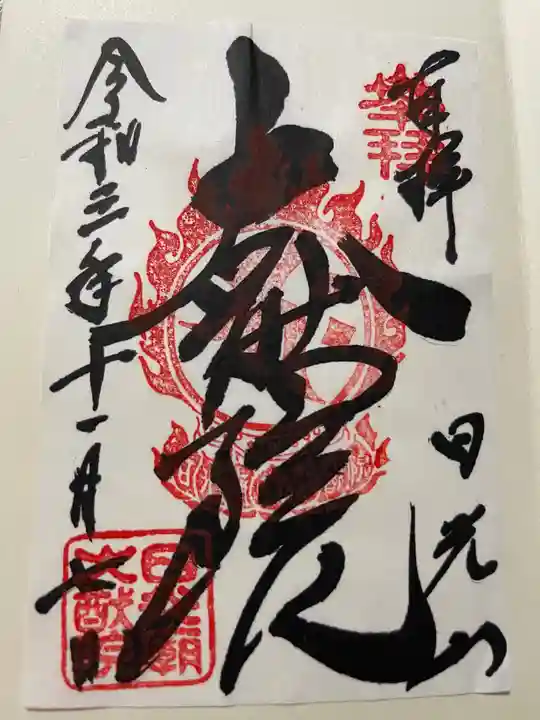 奉拝
日光山
大猷院
令和三年十一月七日
日光廟
大猷院